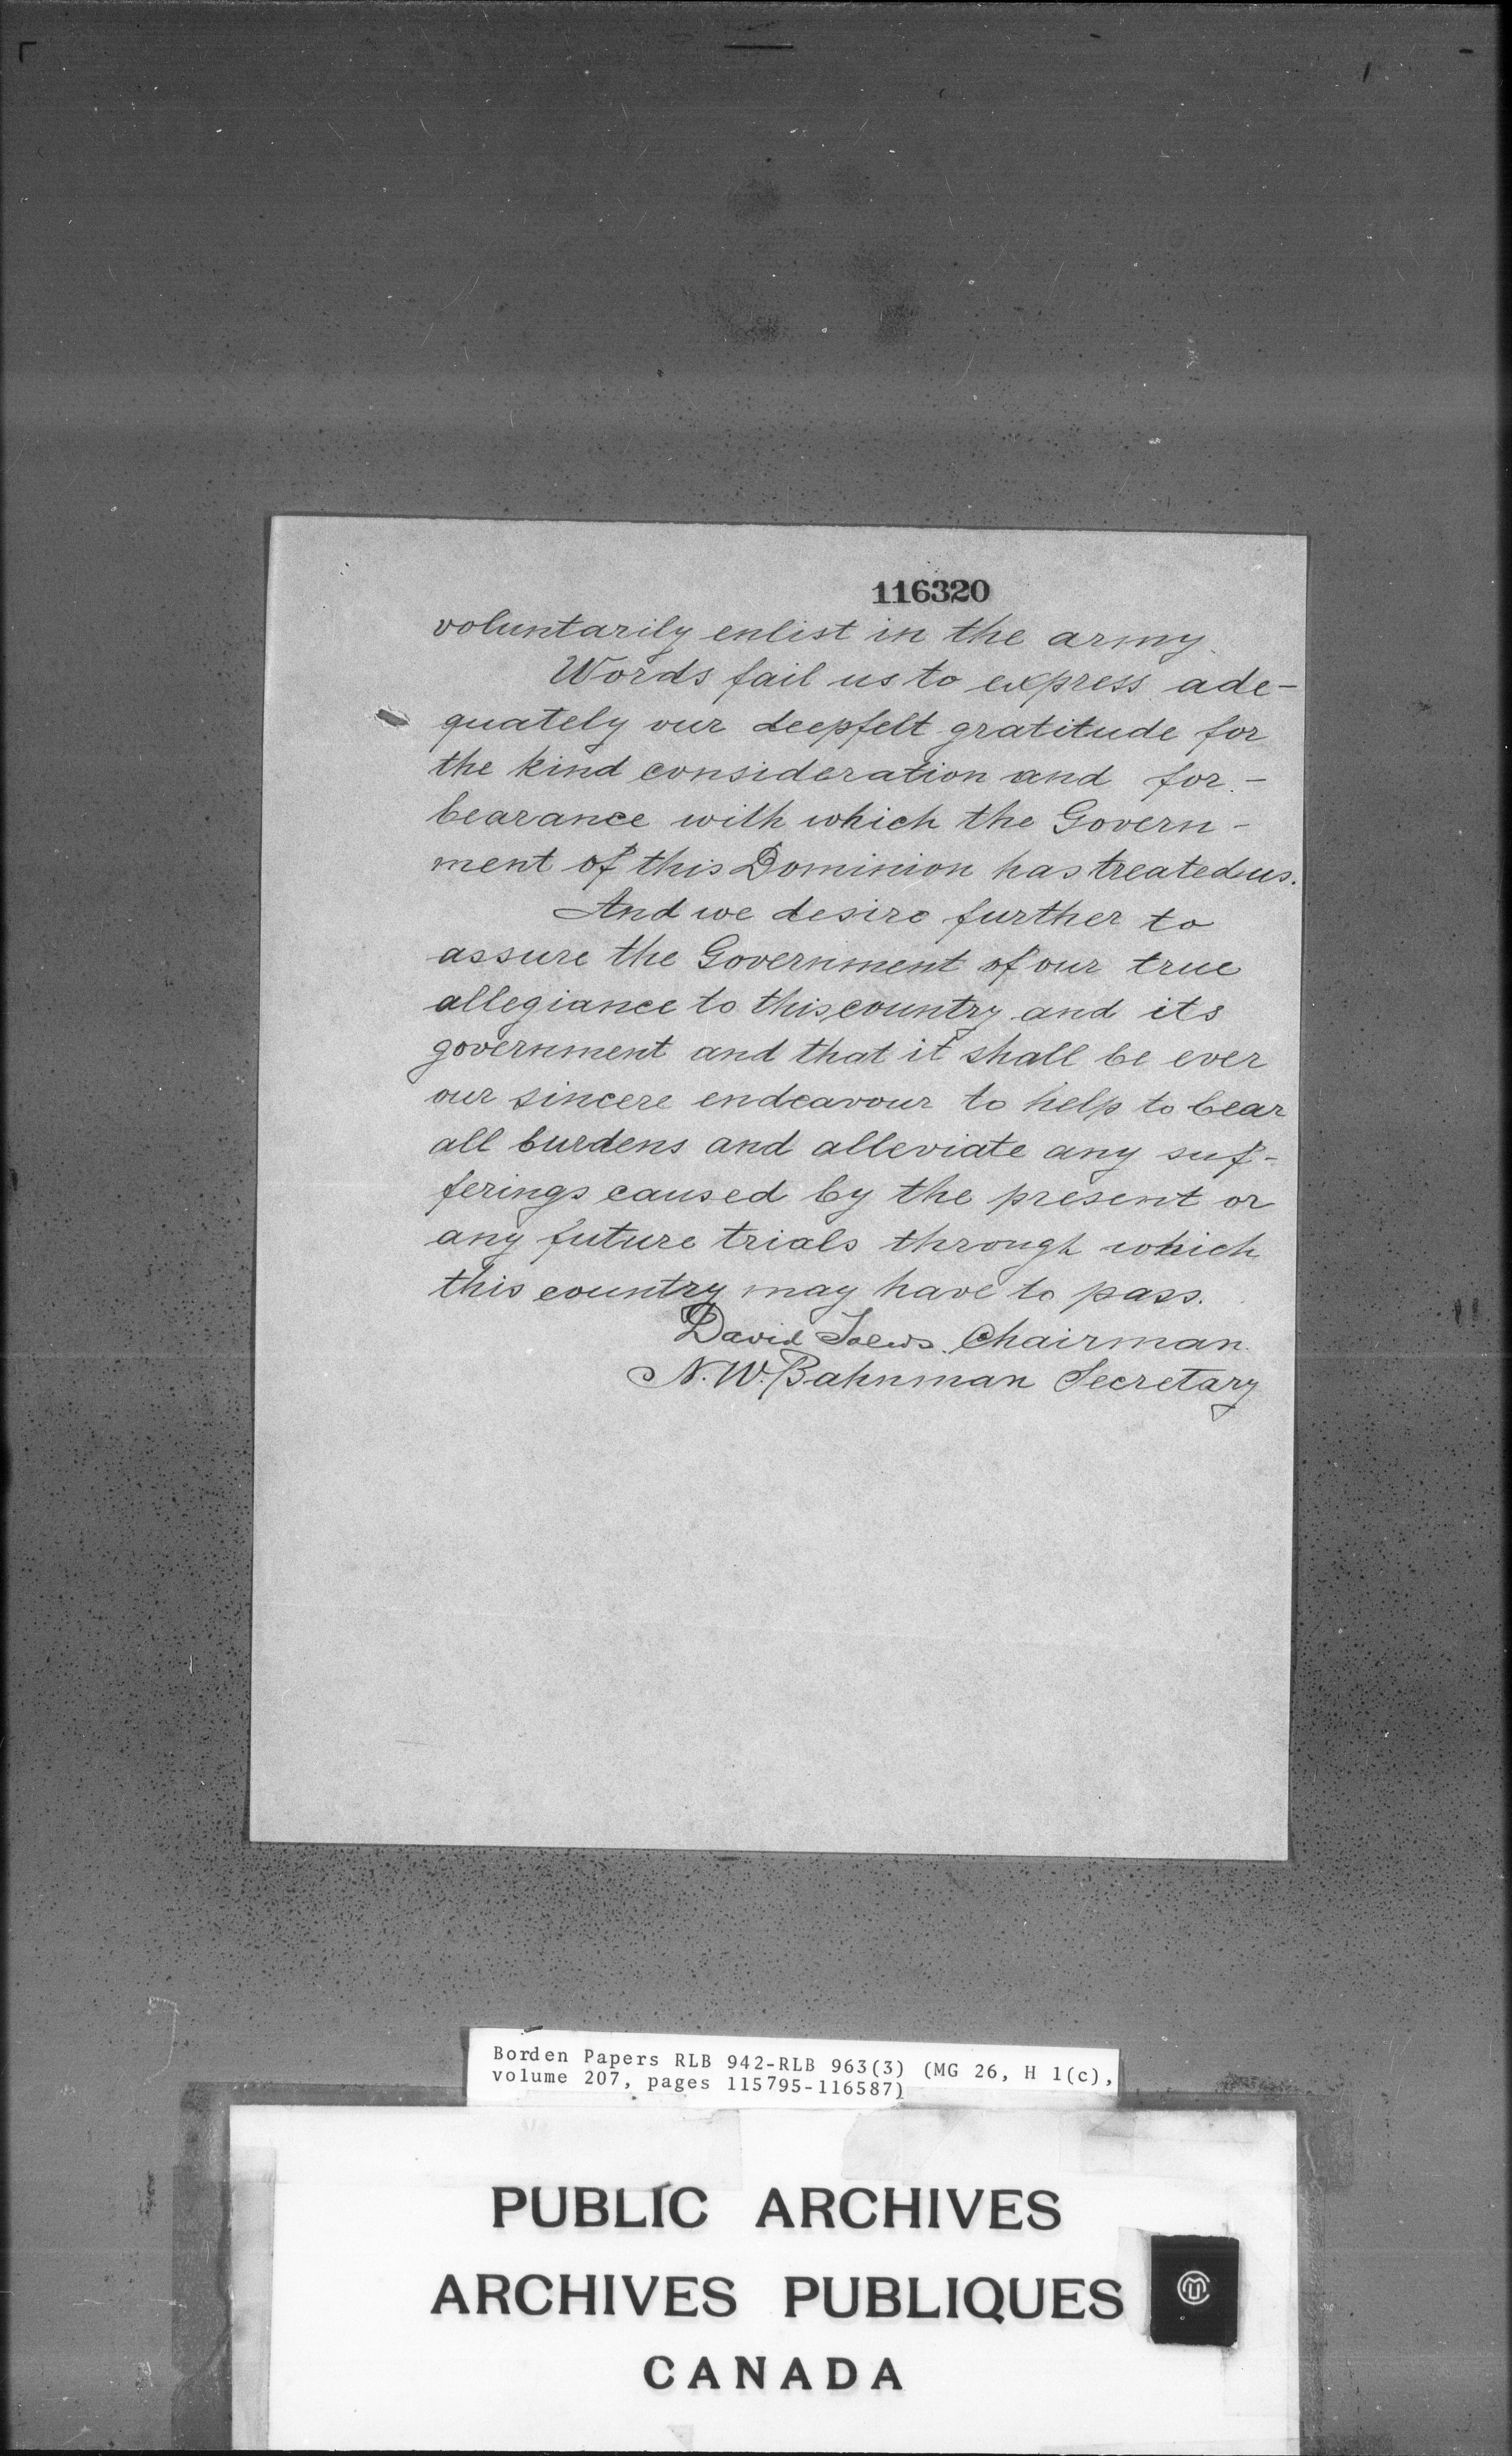 116320
voluntarily enlist in the army.
Words fail us to express ade-
quately our deepfelt gratitude for
the kind consideration and for-
bearance with which the Govern-
ment of this Dominion has treated us.
And we desire further to
assure the Government of our true
allegiance to this country and its
government and that it shall be ever
our sincere endeavour to help to bear
all burdens and alleviate any suf-
ferings caused by the present or
any future trials through which
this country may have to pass.
David Toews. Chairman.
N. W. Bahnman Secretary
Borden Papers RLB 942-RLB 963(3) (MG 26, H 1(c),
volume 207, pages 115795-116587)
PUBLIC ARCHIVES
ARCHIVES PUBLIQUES
CANADA